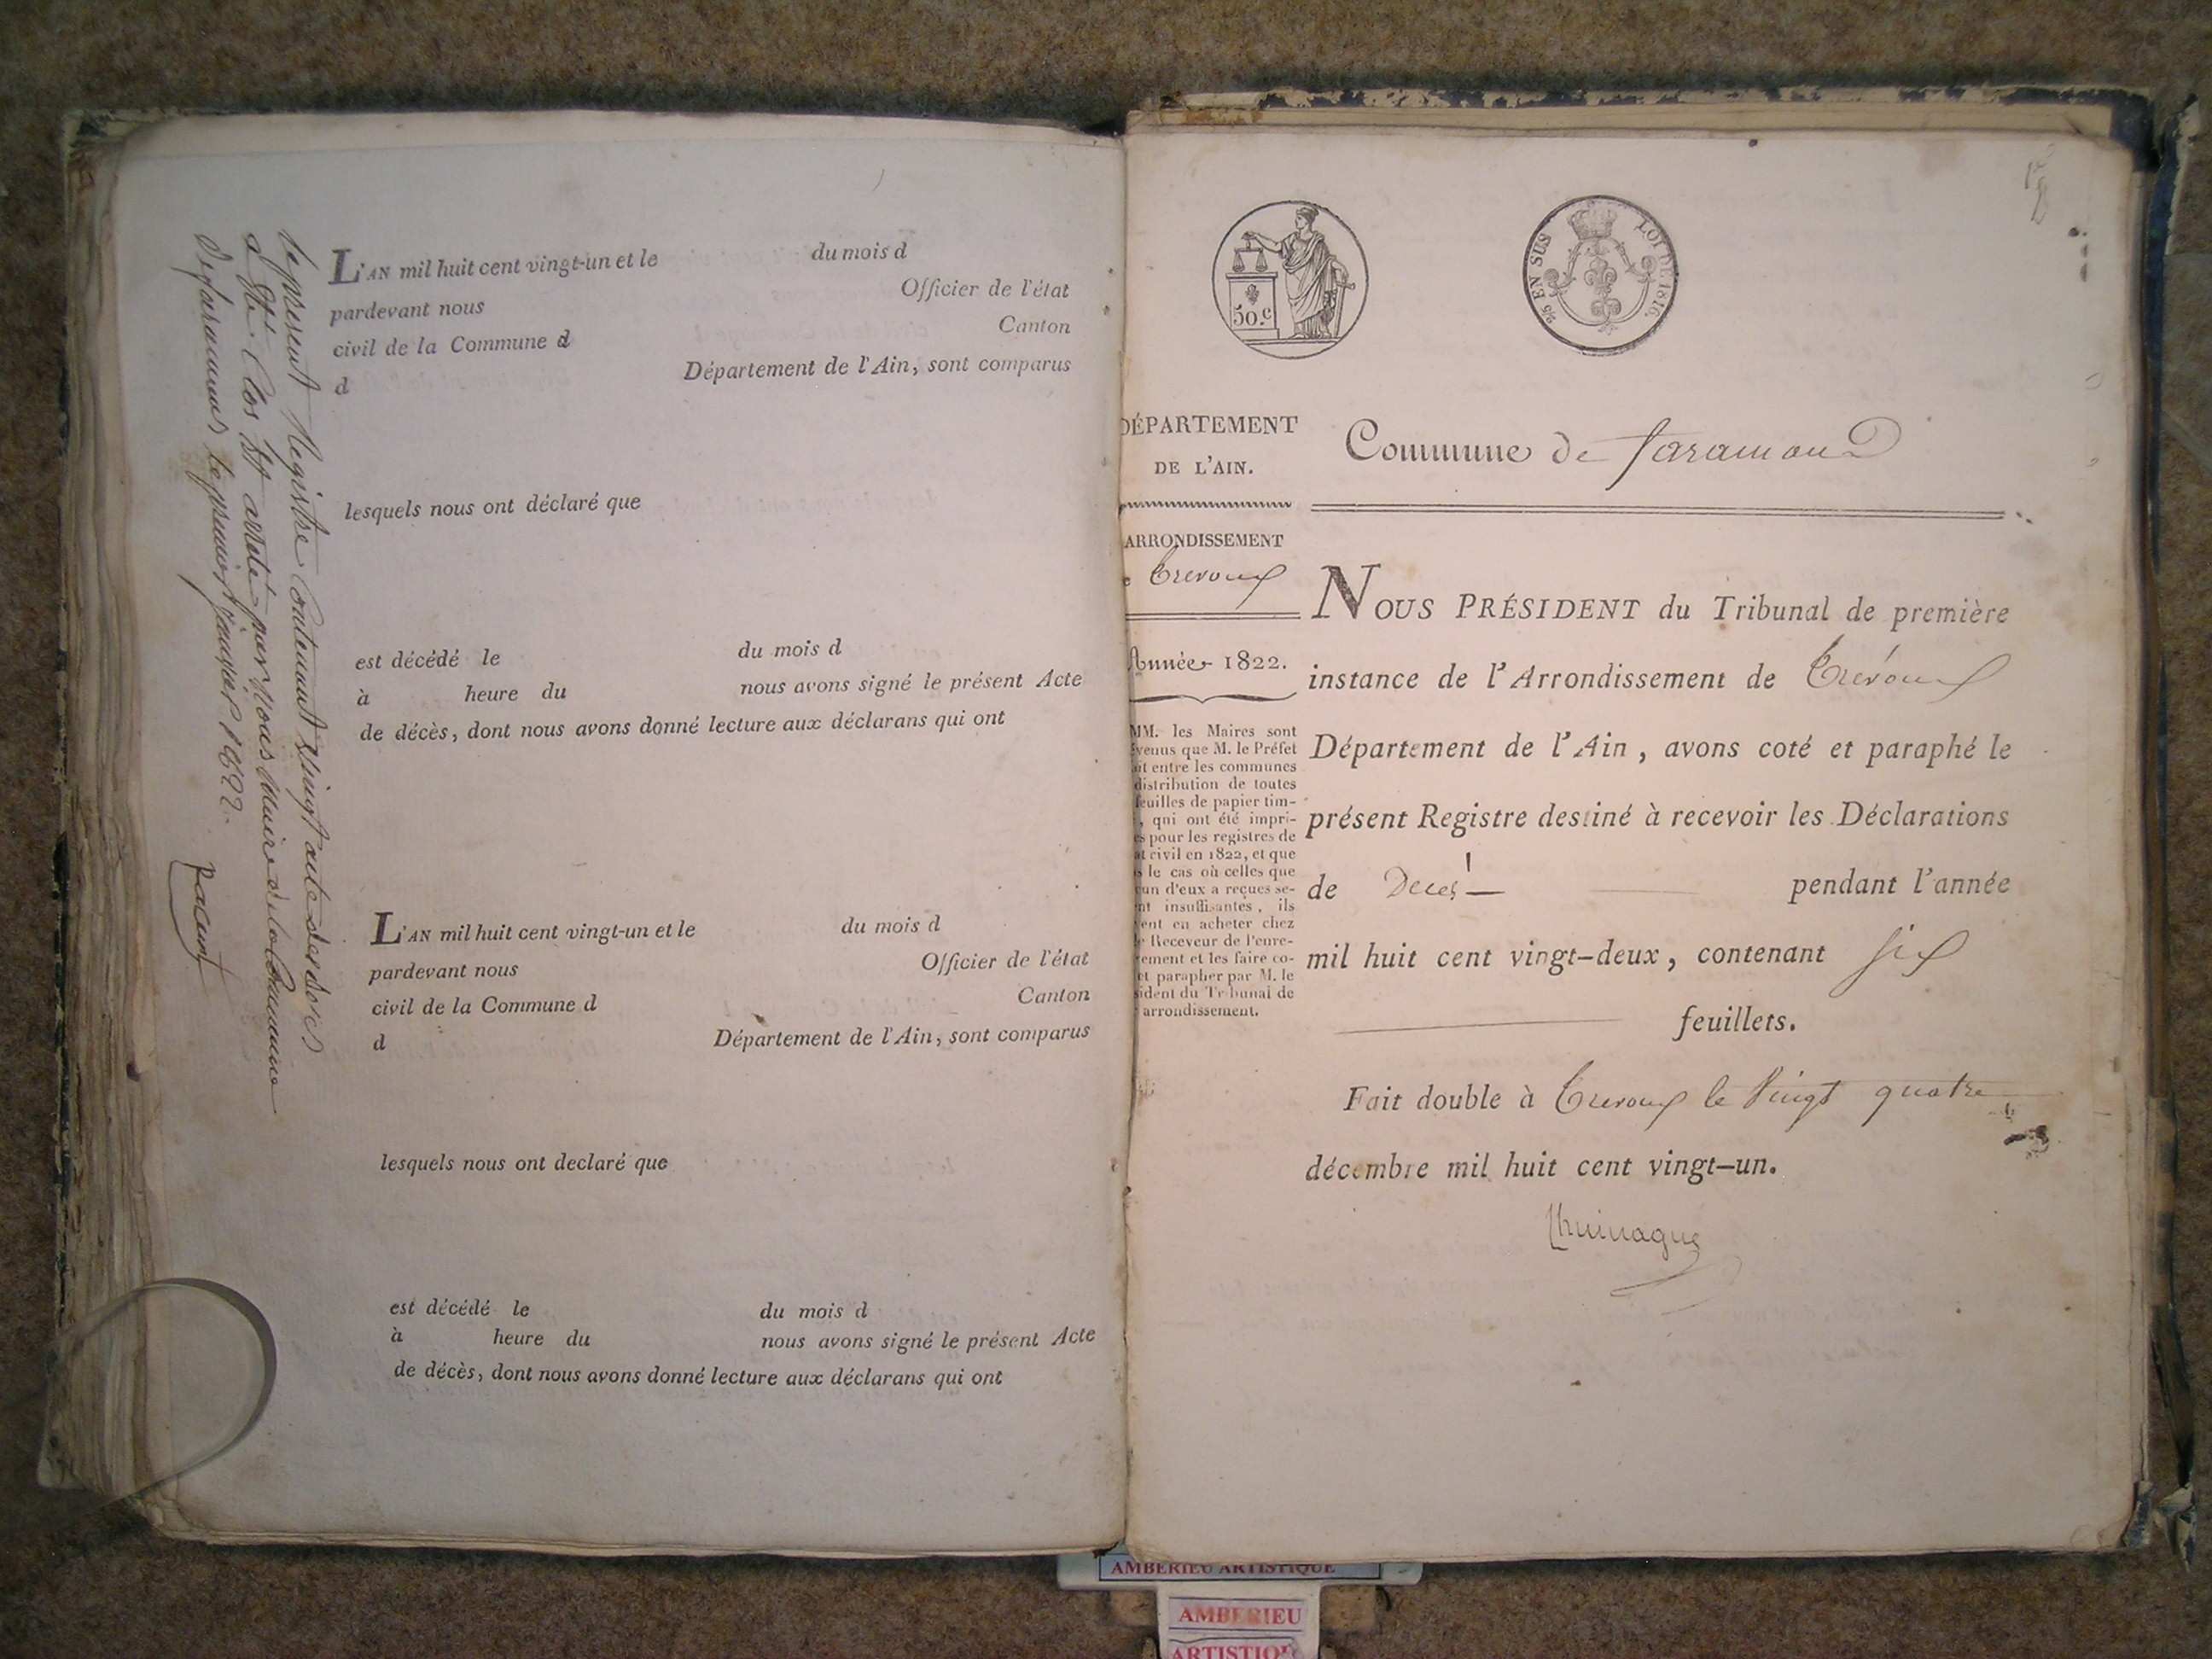 L'AN mil huit cent vingt-un et le du mois d
pardevant nous Officier de l'état
civil de la Commune d Canton
d Département de l'Ain, sont comparus
lesquels nous ont déclaré que
est décédé le du mois d
à heure du nous avons signé le présent Acte
de décès, dont nous avons donné lecture aux déclarans qui ont
L'AN mil huit cent vingt-un et le du mois d
pardevant nous Officier de l'état
civil de la Commune d Canton
d Département de l'Ain, sont comparus
lesquels nous ont declaré que
est décédé le du mois d
à heure du nous avons signé le présent Acte
de décès, dont nous avons donné lecture aux déclarans qui ont
le present Registre Contenant vingt acte de
a été Clos et arreté par Nous Maire de la Commune
le premier janvier 1822.
50.c
25 EN SUS LOI DE 1816.
DÉPARTEMENT
DE L'AIN.
Commune de faramand
ARRONDISSEMENT
Trevoux
Année 1822.
MM. les Maires sont
venus que M. le Préfet
ait entre les communes
distribution de toutes
feuilles de papier tim-
, qui ont été impri-
es pour les registres de
at civil en 1822, et que
s le cas où celles que
cun d'eux a reçues se-
nt insuffisantes, ils
vent en acheter chez
le Receveur de l'enre-
ement et les faire co-
et parapher par M. le
sident du Tribunal de
arrondissement.
NOUS PRÉSIDENT du Tribunal de première
instance de l'Arrondissement de Trévoux
Département de l'Ain, avons coté et paraphé le
présent Registre destiné à recevoir les Déclarations
de Deces pendant l'année
mil huit cent vingt-deux, contenant six
feuillets.
Fait double à Trevoux le Vingt quatre
décembre mil huit cent vingt-un.
AMBERIEU ARTISTIQUE
AMBERIEU
ARTISTIQUE